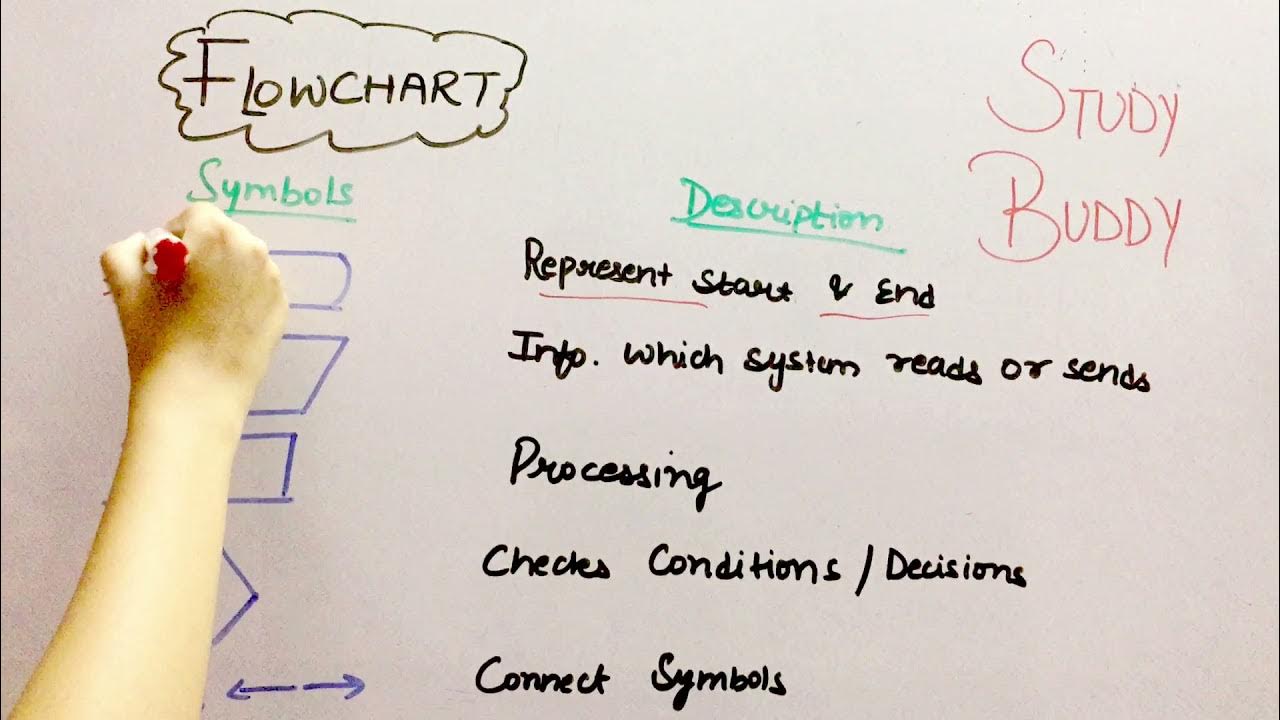 FLOWCHART
STUDY
BUDDY
Symbols
Description
Represent Start & End
Info. which system reads or sends
Processing
Checks Conditions / Decisions
Connect Symbols